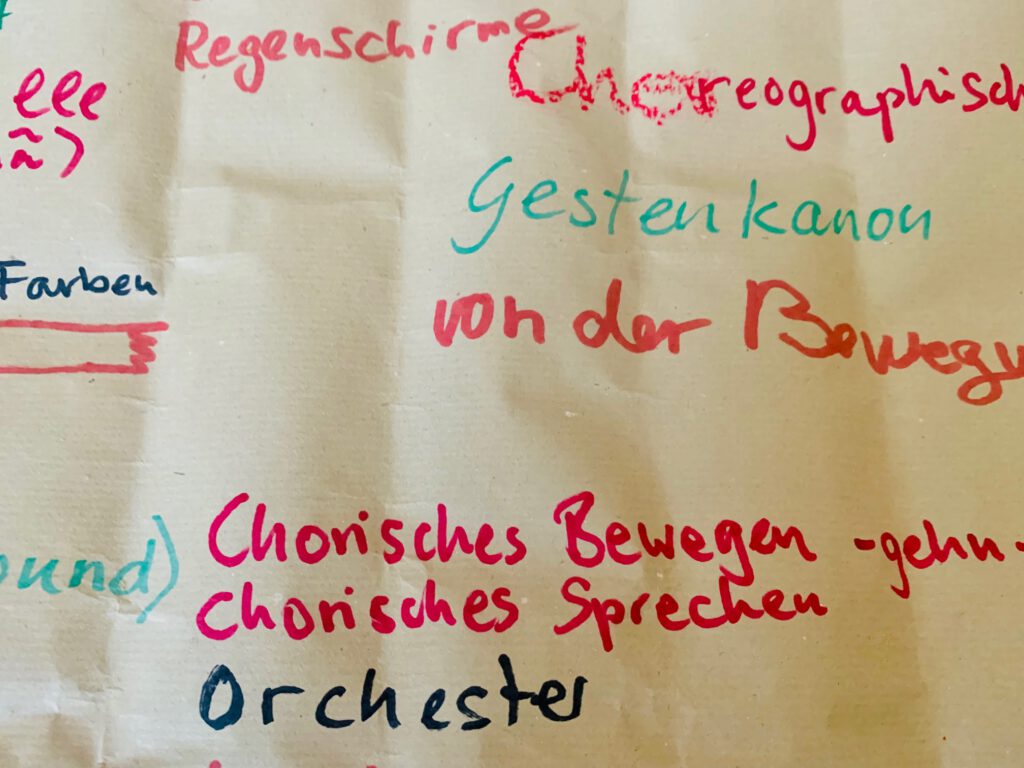 Regenschirme
Choreographisch
elle
Gestenkanon
Farben
von der Bewegu
ound)
Chorisches Bewegen -gehn-
chorisches Sprechen
Orchester